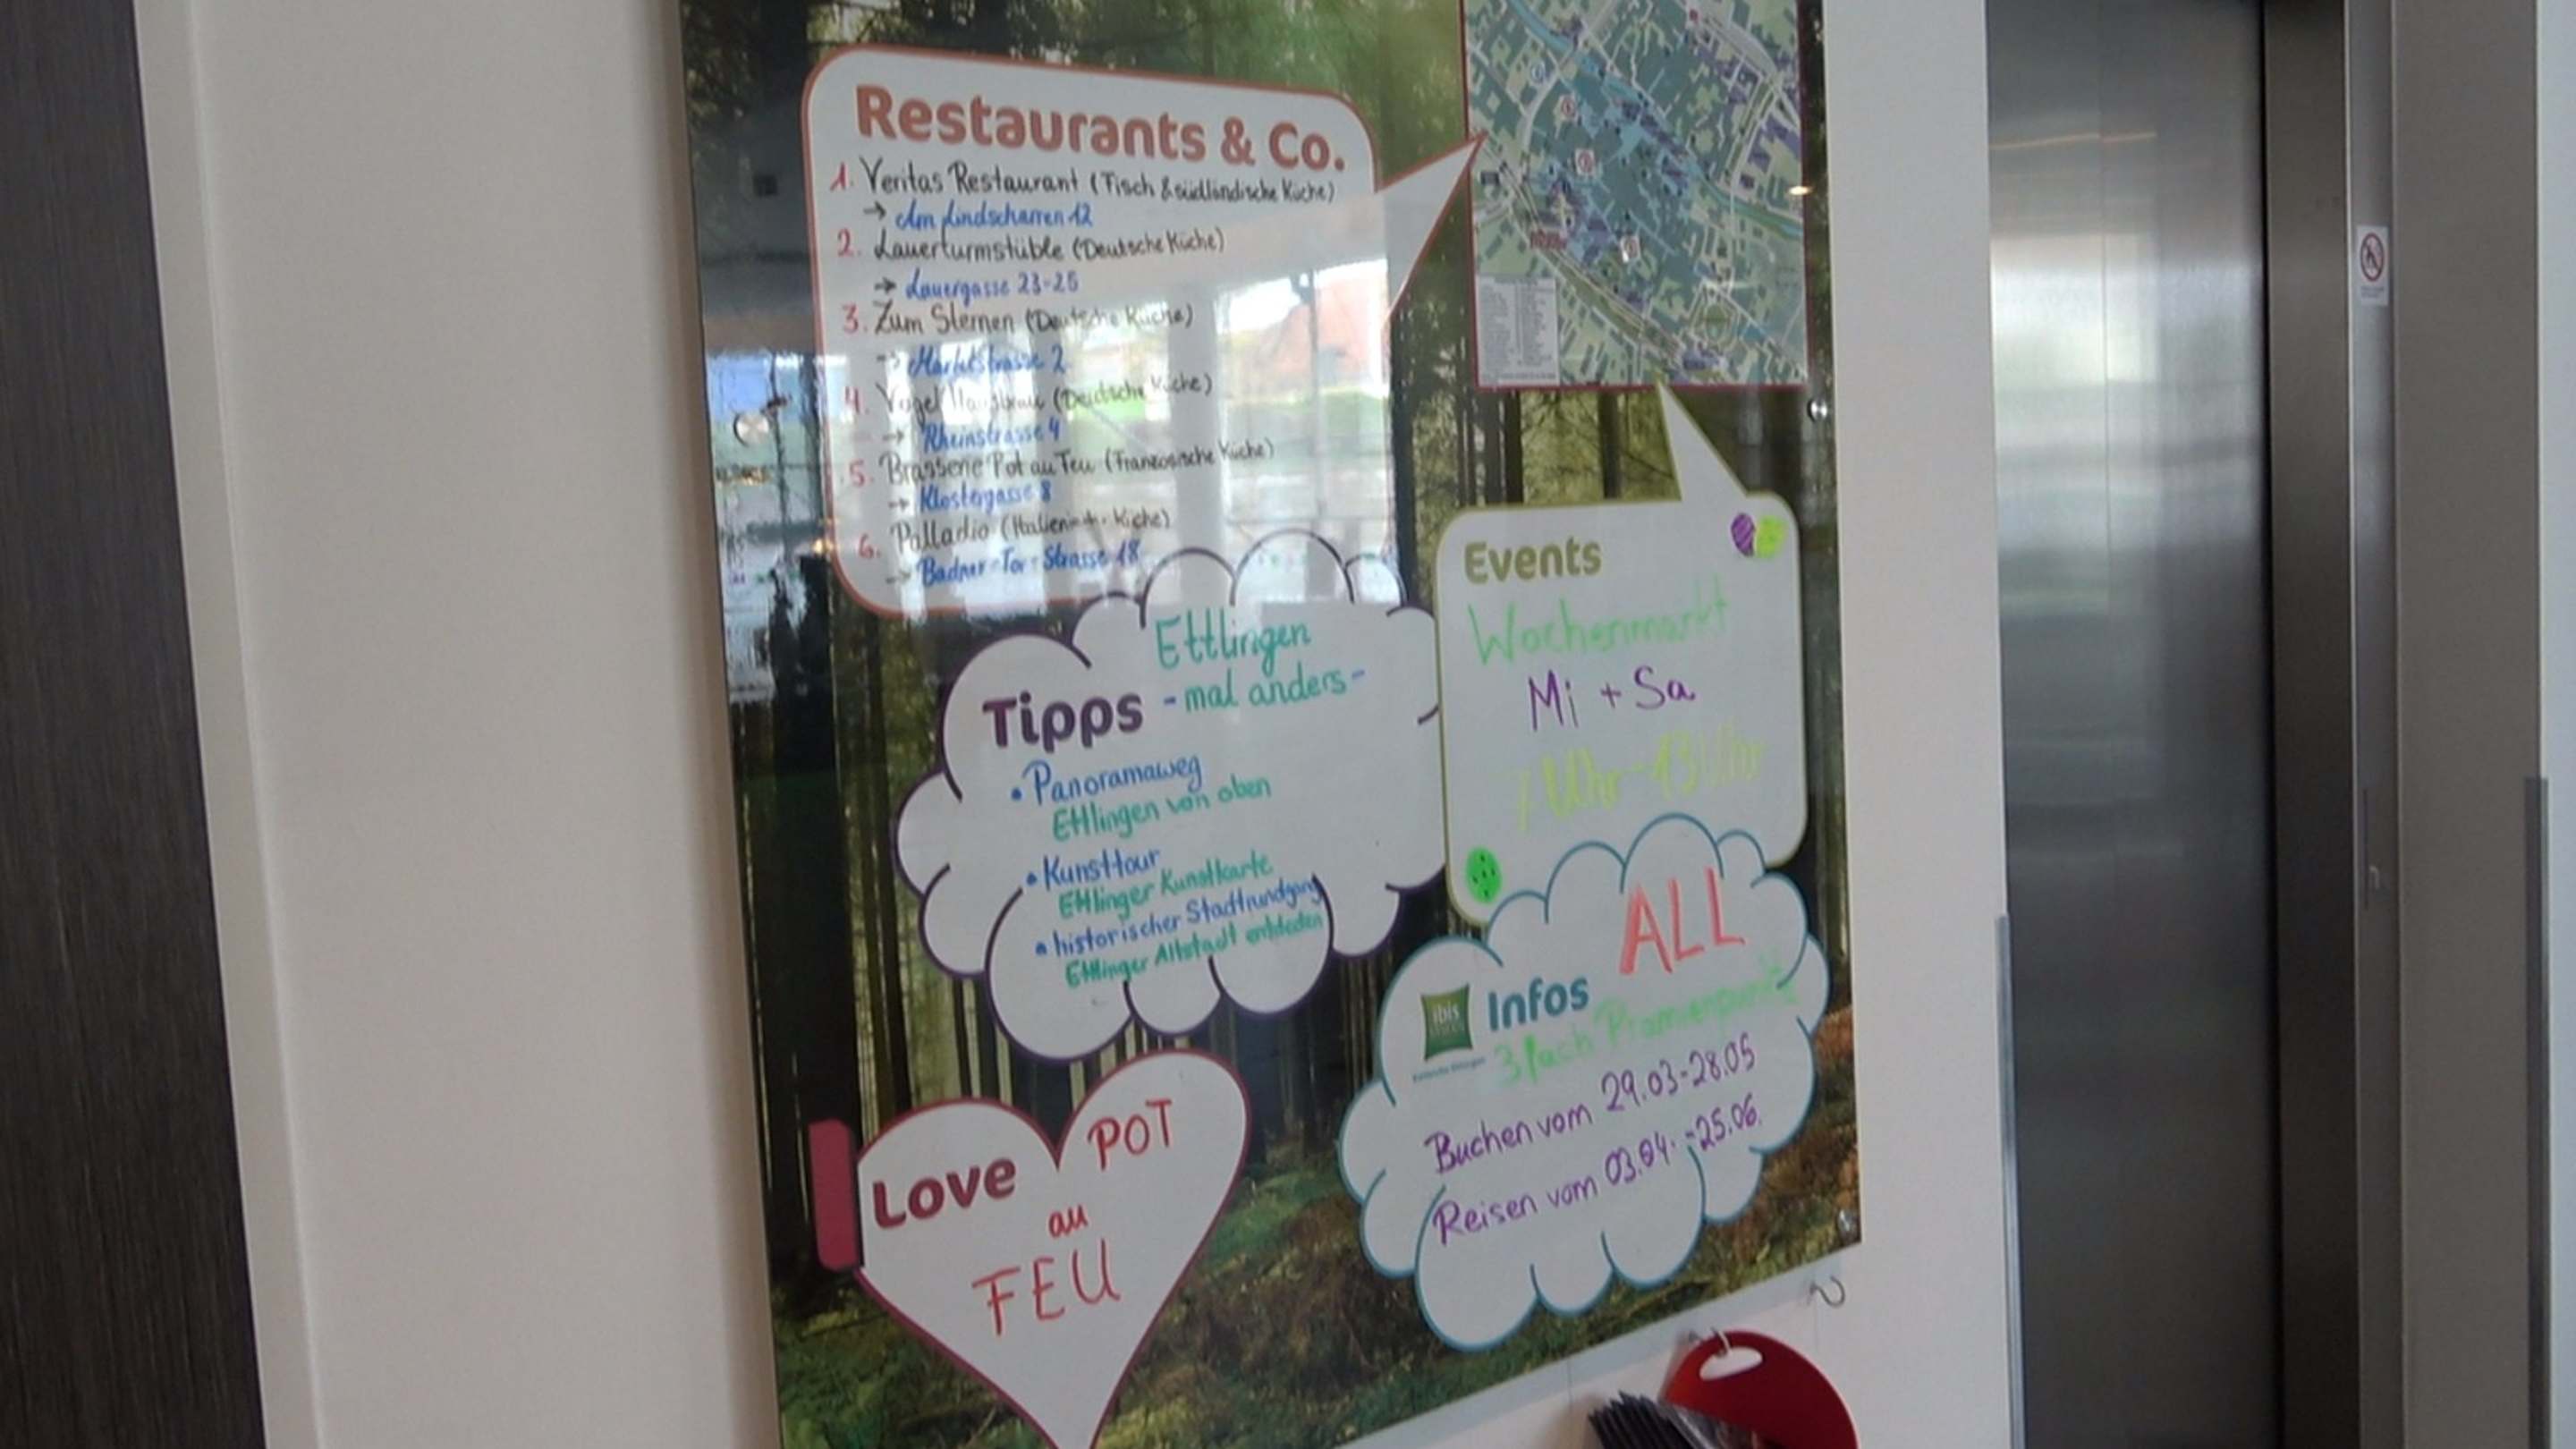 Restaurants & Co.
1. Veritas Restaurant (Fisch & südländische Küche)
→ Am Lindscharren 12
2. Lauerturmstüble (Deutsche Küche)
→ Lauergasse 23-25
3. Zum Sternen (Deutsche Küche)
→ Marktstrasse 2
4. Vogel Hausbräu (Deutsche Küche)
→ Rheinstrasse 4
5. Brasserie Pot au Feu (Französische Küche)
→ Klostergasse 8
6. Palladio (Küche)
→ Badner-Tor-Strasse 18
Tipps
Ettlingen
- mal anders -
• Panoramaweg
Ettlingen von oben
• Kunsttour
Ettlinger Kunstkarte
• historischer Stadtrundgang
Ettlinger Altstadt entdecken
Events
Wochenmarkt
Mi + Sa
7 Uhr - 13 Uhr
ibis
Infos
ALL
3fach Prämienpunkte
Buchen vom 29.03-28.05
Reisen vom 03.04.-25.06.
Love POT
au
FEU